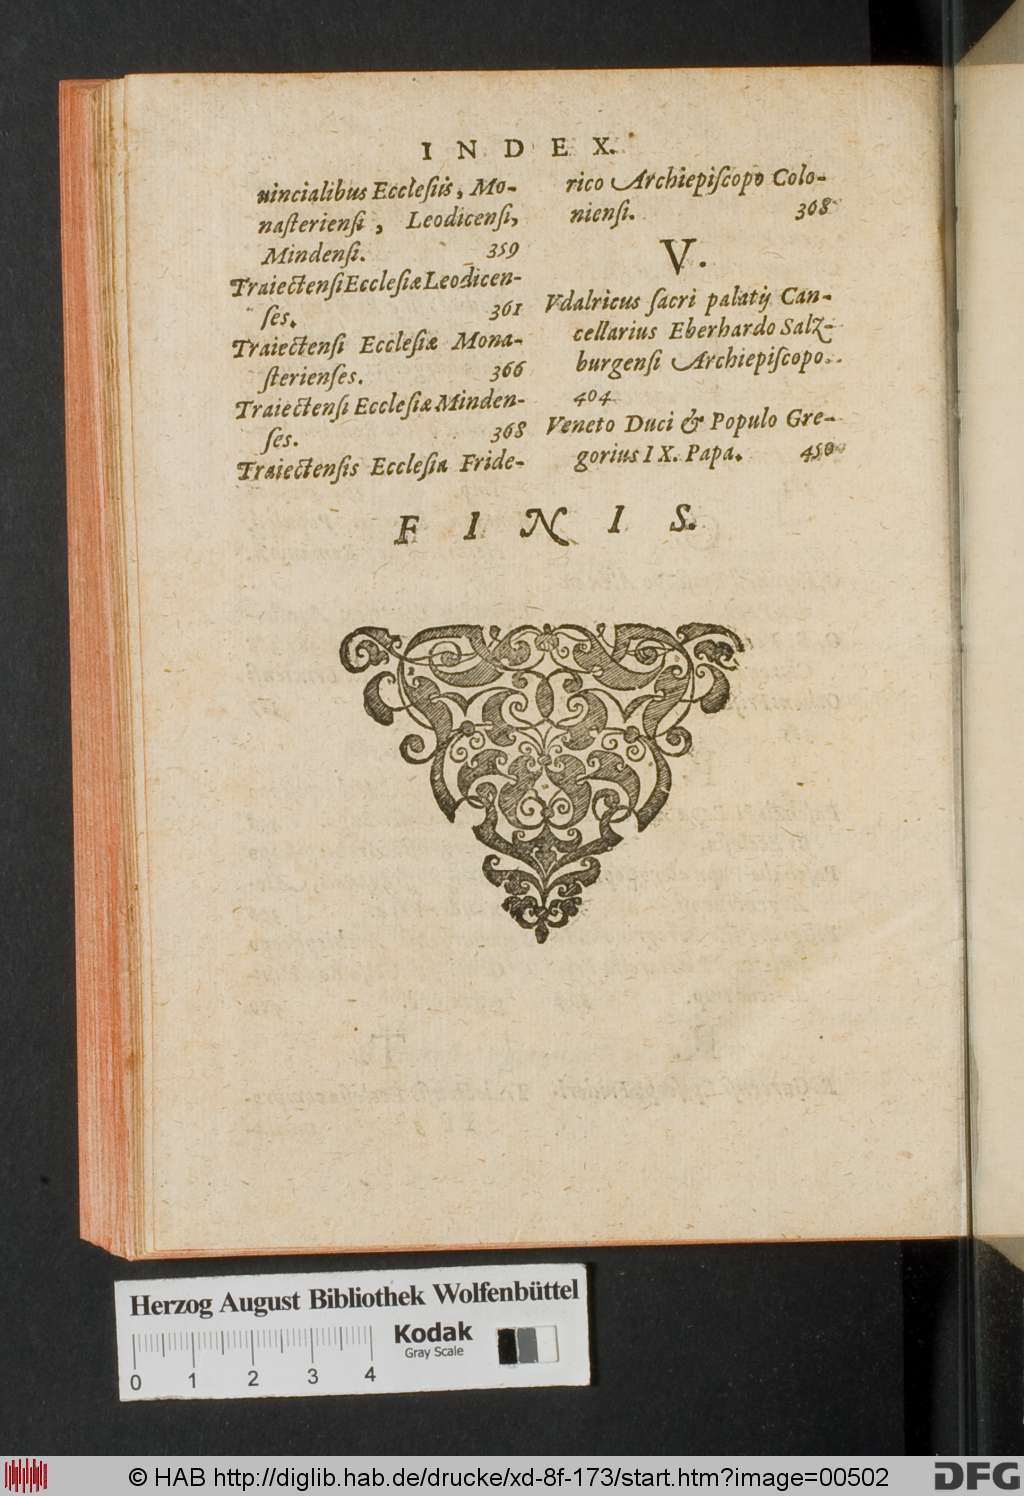 INDEX.
uincialibus Ecclesiis, Mo-
nasteriensi, Leodicensi,
Mindensi. 359
Traiectensi Ecclesiæ Leodicen-
ses. 361
Traiectensi Ecclesiæ Mona-
sterienses. 366
Traiectensi Ecclesiæ Minden-
ses. 368
Traiectensis Ecclesia Fride-
rico Archiepiscopo Colo-
niensi. 368
V.
Vdalricus sacri palatij Can-
cellarius Eberhardo Salz-
burgensi Archiepiscopo.
404
Veneto Duci & Populo Gre-
gorius IX. Papa. 450
FINIS.
Herzog August Bibliothek Wolfenbüttel
Kodak
Gray Scale
0 1 2 3 4
© HAB http://diglib.hab.de/drucke/xd-8f-173/start.htm?image=00502
DFG